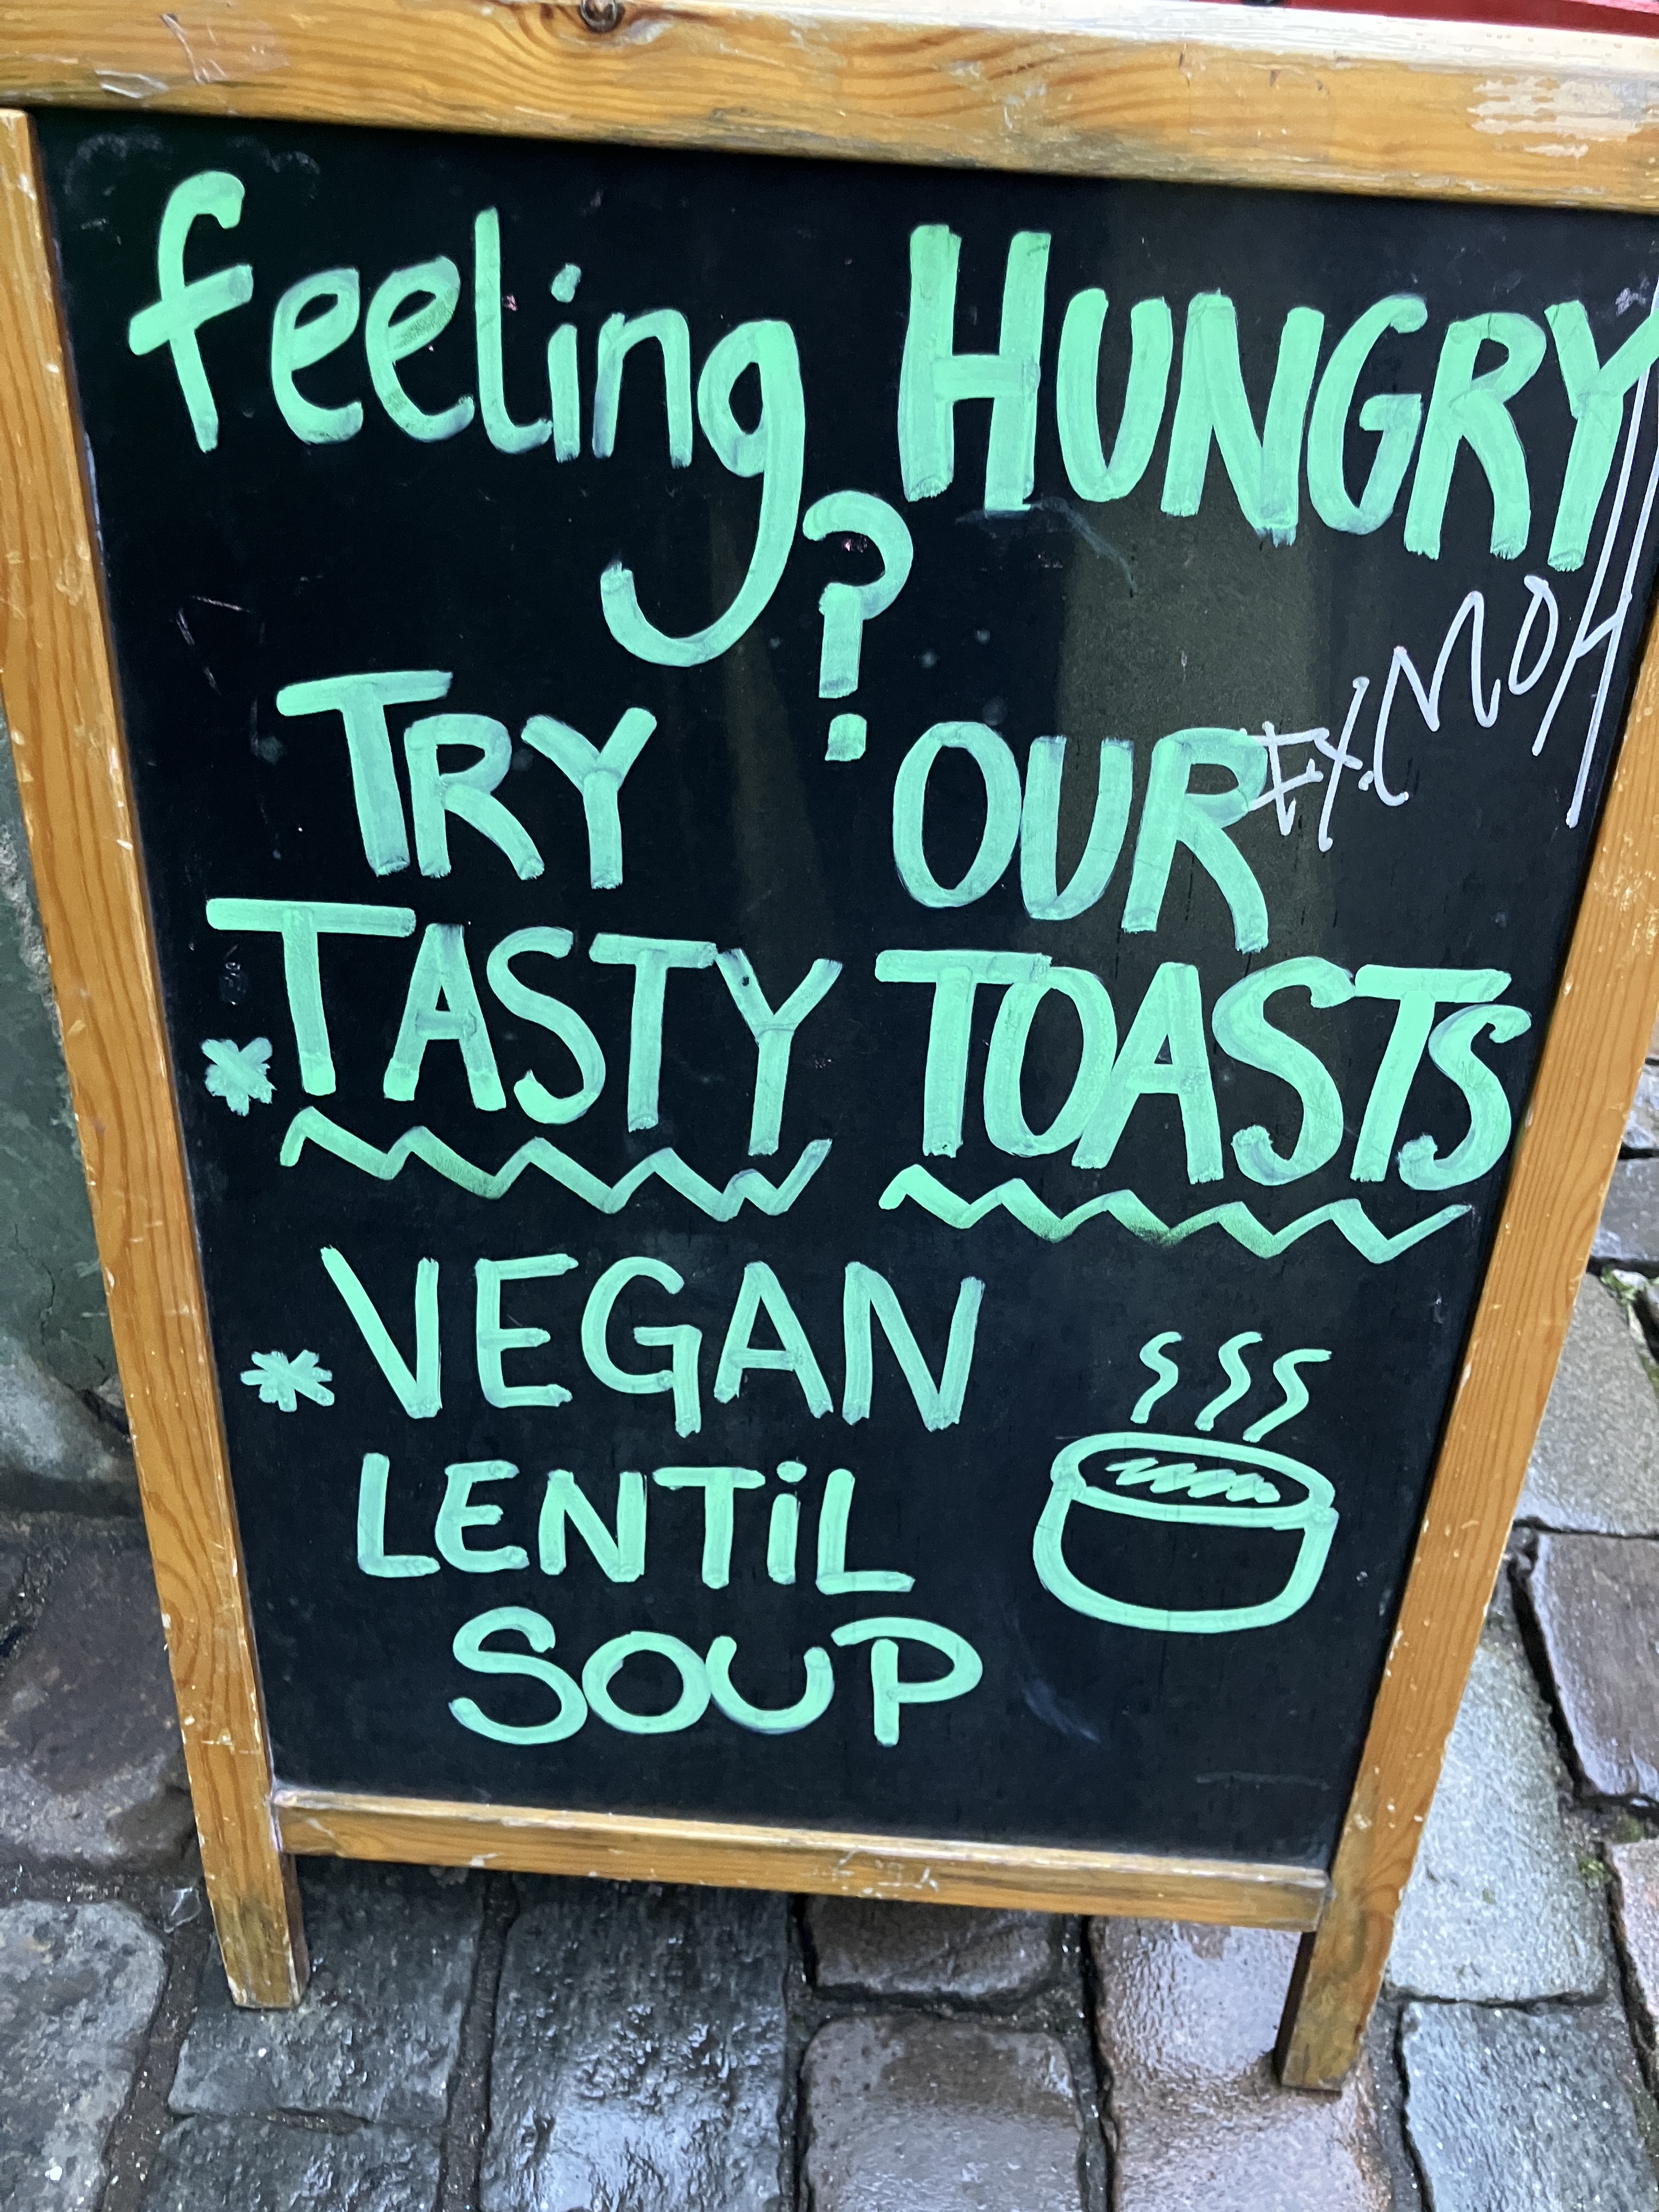 feeling HUNGRY
?
TRY OUR
* TASTY TOASTS
* VEGAN
LENTiL
SOUP